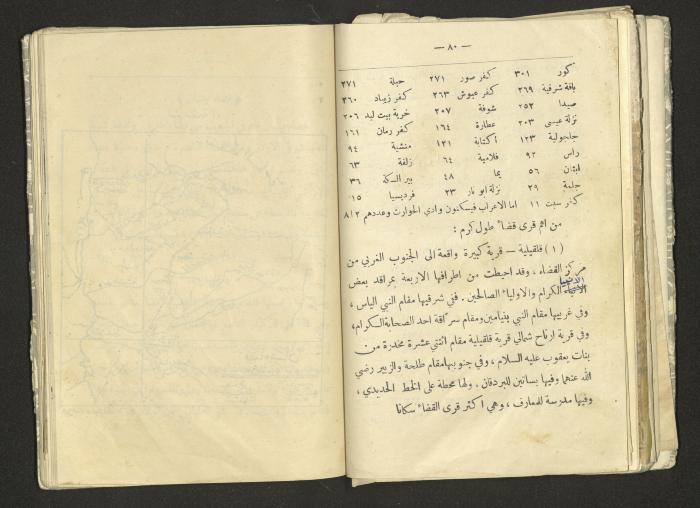 — ٨٠ —
كور ٣٠١ كفر صور ٢٧١ جبلة ٢٧١
باقة شرقية ٢٦٩ كفر عبوش ٢٦٣ كفر زيباد ٢٦٠
صيدا ٢٥٢ شوفة ٢٠٧ خربة بيت ليد ٢٠٦
نزلة عيسى ٢٠٣ عطارة ١٦٤ كفر رمان ١٦١
جلجولية ١٢٣ اكتابة ١٢١ منشية ٩٤
راس ٩٢ فلامية ٦٤ زلفة ٦٣
ابثان ٥٦ يما ٤٨ بير السكة ٣٦
جلمة ٢٩ نزلة ابو نار ٢٣ فرديسيا ١٥
كفر سبت ١١ اما الاعراب فيسكنون وادي الحوارث وعددهم ٨١٢
من اهم قرى قضاء طول كرم :
( ١ ) قلقيلية — قرية كبيرة واقعة الى الجنوب الغربي من
مركز القضاء ، وقد احيطت من اطرافها الاربعة بمراقد بعض
الانبياء الكرام والاولياء الصالحين . ففي شرقيها مقام النبي الياس ،
وفي غربيها مقام النبي بنيامين ومقام سراقة احد الصحابة الكرام ،
وفي قرية ارتاح شمالي قرية قلقيلية مقام اثنتي عشرة مخدرة من
بنات يعقوب عليه السلام ، وفي جنوبيها مقام طلحة والزبير رضي
الله عنهما وفيها بساتين للبردقان . ولها محطة على الخط الحديدي ،
وفيها مدرسة للمعارف ، وهي اكثر قرى القضاء سكانا